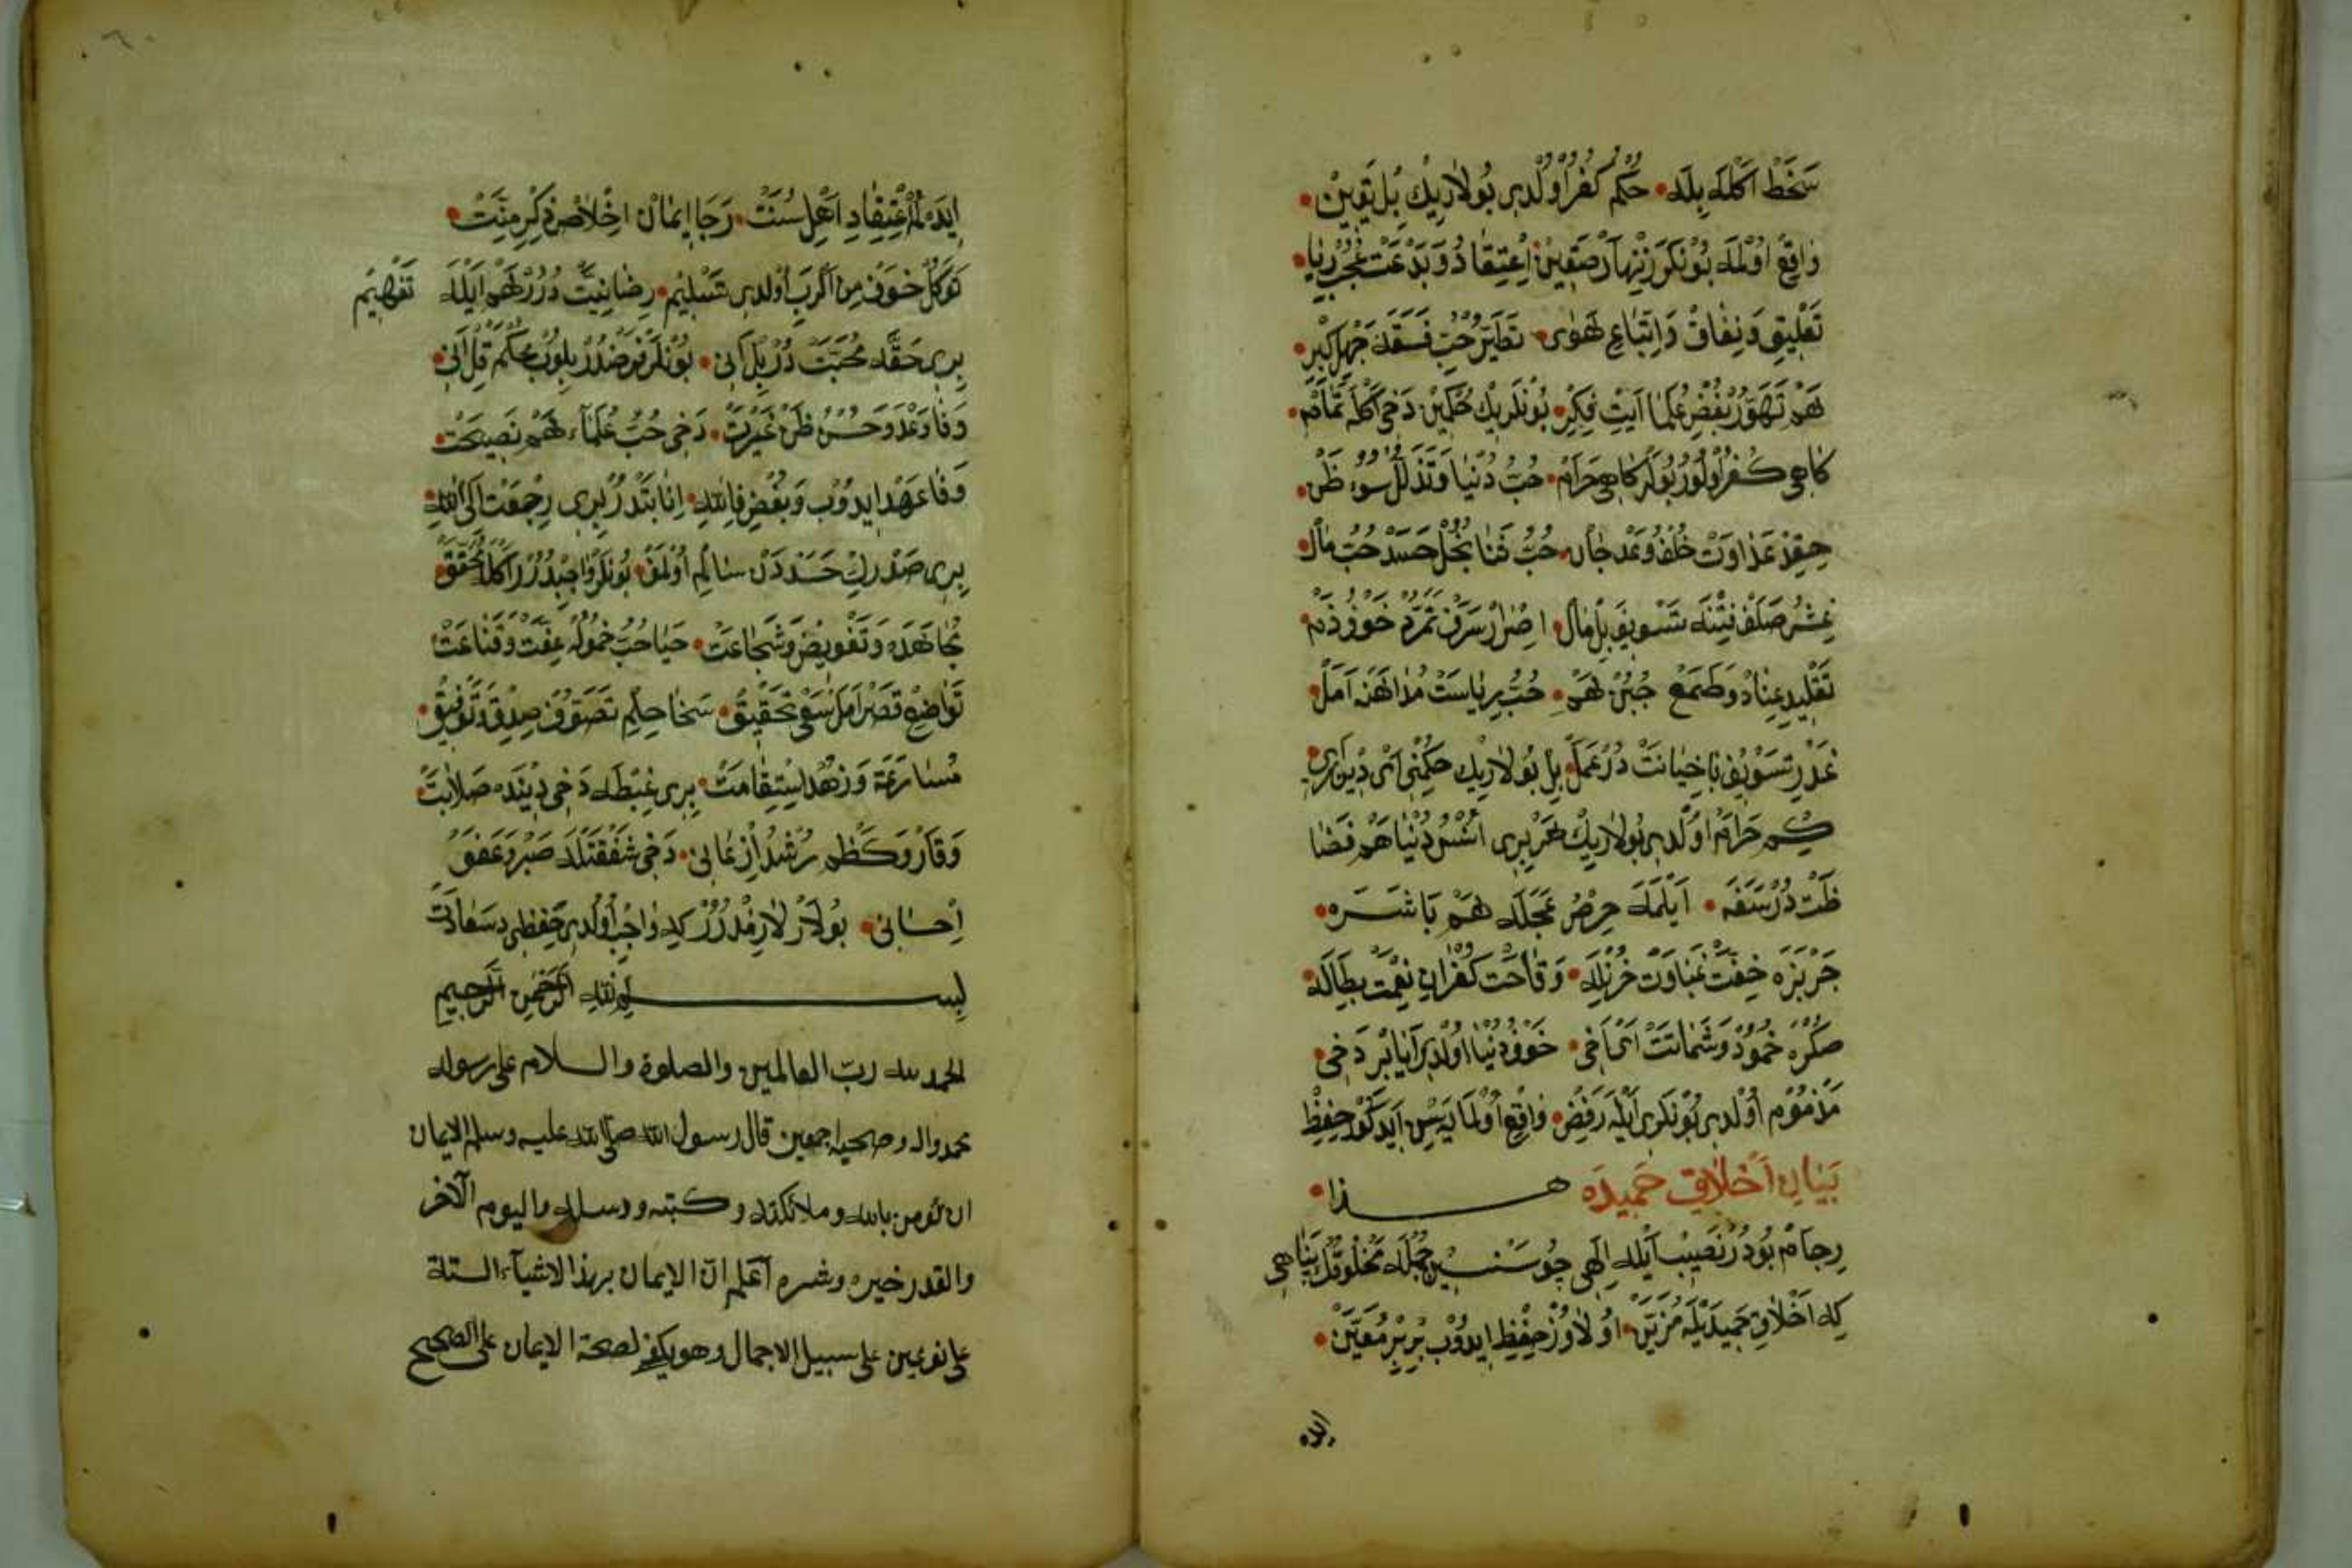 سَخَطْ اَكْلَه بِلَه • حُكْم كُفْر اُولْدِى بُولَارِيكْ بِلْ يَقِينْ •
وَاقِعْ اوُلْمَه بُونْكَرَ زِنْهَارْ صَقِينْ • اِعْتِقَادُ وَ بِدْعَتْ عُجْبُ رِيَا •
تَعْلِيقِ وَ نِفَاقْ وَ اِتِّبَاعِ هَوٰى • تَطَيُّرْ حُبِّ فَسَقَه جَهْلُ كِبْر •
هَمْ تَهَوُّرْ بُغْضِ عُلَمَا اَيتْ فِكِرْ • بُونْلَرِيكْ حُكْمِينْ دَخِى اَكْلَه تَمَامْ •
كَاهِى كُفْر اوُلُورْ بُولَرْ كَاهِى حَرَامْ • حُبُّ دُنْيَا وَ تَذَلُّلْ سُوءِ ظَنْ •
حِقِدْ عَدَاوَتْ خُلْفُ وَعْدْ جَانْ • حُبُّ ثَنَا بُخْلْ حَسَدْ حُبِّ مَالْ •
غِشُّ صَلَفْ فِتْنَه تَسْوِيفْ بِلْ مَالْ • اِصْرَارْ سَرَفْ تَمَرُّدْ خَوْفِ ذَمْ •
تَقْلِيدِ عِنَادْ وَ طَمَعْ جُبُنْ هَمْ • حُبُّ رِيَاسَتْ مُدَاهَنَه اَمَلْ •
غَدْر تَسْوِيفْ يَا خِيَانَتْ دُرْ عَمَلْ • بِلْ بُولَارِيكْ حُكْمِنِى اَىْ دِينْ اَرِى •
كِم حَرَامْ اوُلْدِى بُولَارِيكْ هَرْ بِرِى اُنْسُ دُنْيَا هَمْ فَضَا
ظَتْ دُرْ سَفَه • اَيْلَمَه حِرْصُ عَجَلَه هَمْ يَا شَرَه •
جَرْبَزَه خِفَّتْ غَبَاوَتْ حُزْنِلَه • وَقَاحَتْ كُفْرَانِ نِعْمَتْ بِطَالَه •
صَكْرَه خُمُودُ وَ شَمَاتَتْ اَىْ اَخِى • خَوْفِ دُنْيَا اوُلْدِى اَيَا بِرْ دَخِى •
مَذْمُومْ اوُلْدِى بُونْكَرِى اَيْلَه رَفِضْ • وَاقِعْ اوُلْمَايَسِنْ اَيدَكُورْ حِفِظْ
بَيَانِ اَخْلَاقِ حَمِيدَه هـــذا •
رِجَامْ بُودُرْ نَصِيبْ اَيْلَه اِلٰهِى چُو سَنْسِينْ جُمْلَه مَخْلُوقُكْ پَنَاهِى
كِه اَخْلَاقِ حَمِيدَيْلَه مُزَيَّنْ • اوُلَاوُزْ حِفِظْ ايدُوْبْ بِرْ بِرْ مُعَيَّنْ •
ايده
ايدَه لُمْ اِعْتِقَادِ اَهْلِ سُنَّتْ • رَجَا ايمَانْ اِخْلَاصْ ذِكْرِ مِنَّتْ •
تَوَكُّلْ خَوْفْ مِنْ اَكْرَبْ اوُلْدِى تَسْلِيمْ • رِضَا نِيَّتْ دُرُرْ هَمْ اَيْلَه تَفْهِيمْ
بِرِى حَقَّه مُحَبَّتْ دُرْ بِلْ اَنِى • بُونْلَرْ فَرْضْدُرْ بِلُوبْ مُحْكَمْ قِلْ اَنِى •
وَفَا وَعْدُ وَ حُسْنُ ظَنْ غَيْرَتْ • دَخِى حُبِّ عُلَمَاءِ هَمْ نَصِيحَتْ •
وَفَا عَهْد ايدُوْبْ وَ بُغْضِ فِاللهِ • اِنَابَتْدُرْ بِرِى رِجْعَتْ اِلَى اللهِ •
بِرِى صَدْرِكْ حَسَدْدَنْ سَالِمْ اوُلْمَقْ • بُونْلَرْ وَاجِبْدُرُرْ اَكْلَا مُحَقَّقْ •
مُجَاهَدَه وَ تَفْوِيضْ وَ شَجَاعَتْ • حَيَا حُبُّ خُمُولْ عِفَّتْ وَ قَنَاعَتْ
تَوَاضُعْ قَصْرِ اَمَلْ سَعْىِ تَحْقِيقْ • سَخَا حِلْمِ تَصَوُّفْ صِدِقْ وَ تَوْفِيقْ •
مُسَارَعَة وَ زُهْد اِسْتِقَامَتْ • بِرِى غِبْطَه دَخِى دِينَدَه صَلَابَتْ •
وَقَارُ وَ كَظْم رُشْد اَزْعَانِى • دَخِى شَفْقَتْلَه صَبْرُ وَ عَفَوُ
اِحْسَانِى • بُولَارْ لَازِمْدُرُرْ كِه وَاجِبْ اوُلْدِى حِفِظِى سَعَادَتْ
بســـم الله الرحمن الرحيم
الحمد لله ربّ العالمين والصلوة والسلام على رسوله
محمد واله وصحبه اجمعين قال رسول الله صلّى الله عليه وسلم الايمان
ان تؤمن بالله وملائكته وكتبه ورسله واليوم الآخر
والقدر خيره وشره اعلم انّ الايمان بهذا الاشيآء الستة
على نوعين على سبيل الاجمال وهو يكفى لصحة الايمان على الصحيح